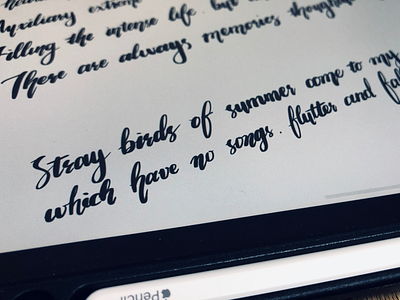 Auxiliary extreme
Filling the intense life but
There are always memories throughout
Stray birds of summer come to my
which have no songs. flutter and fall
Pencil